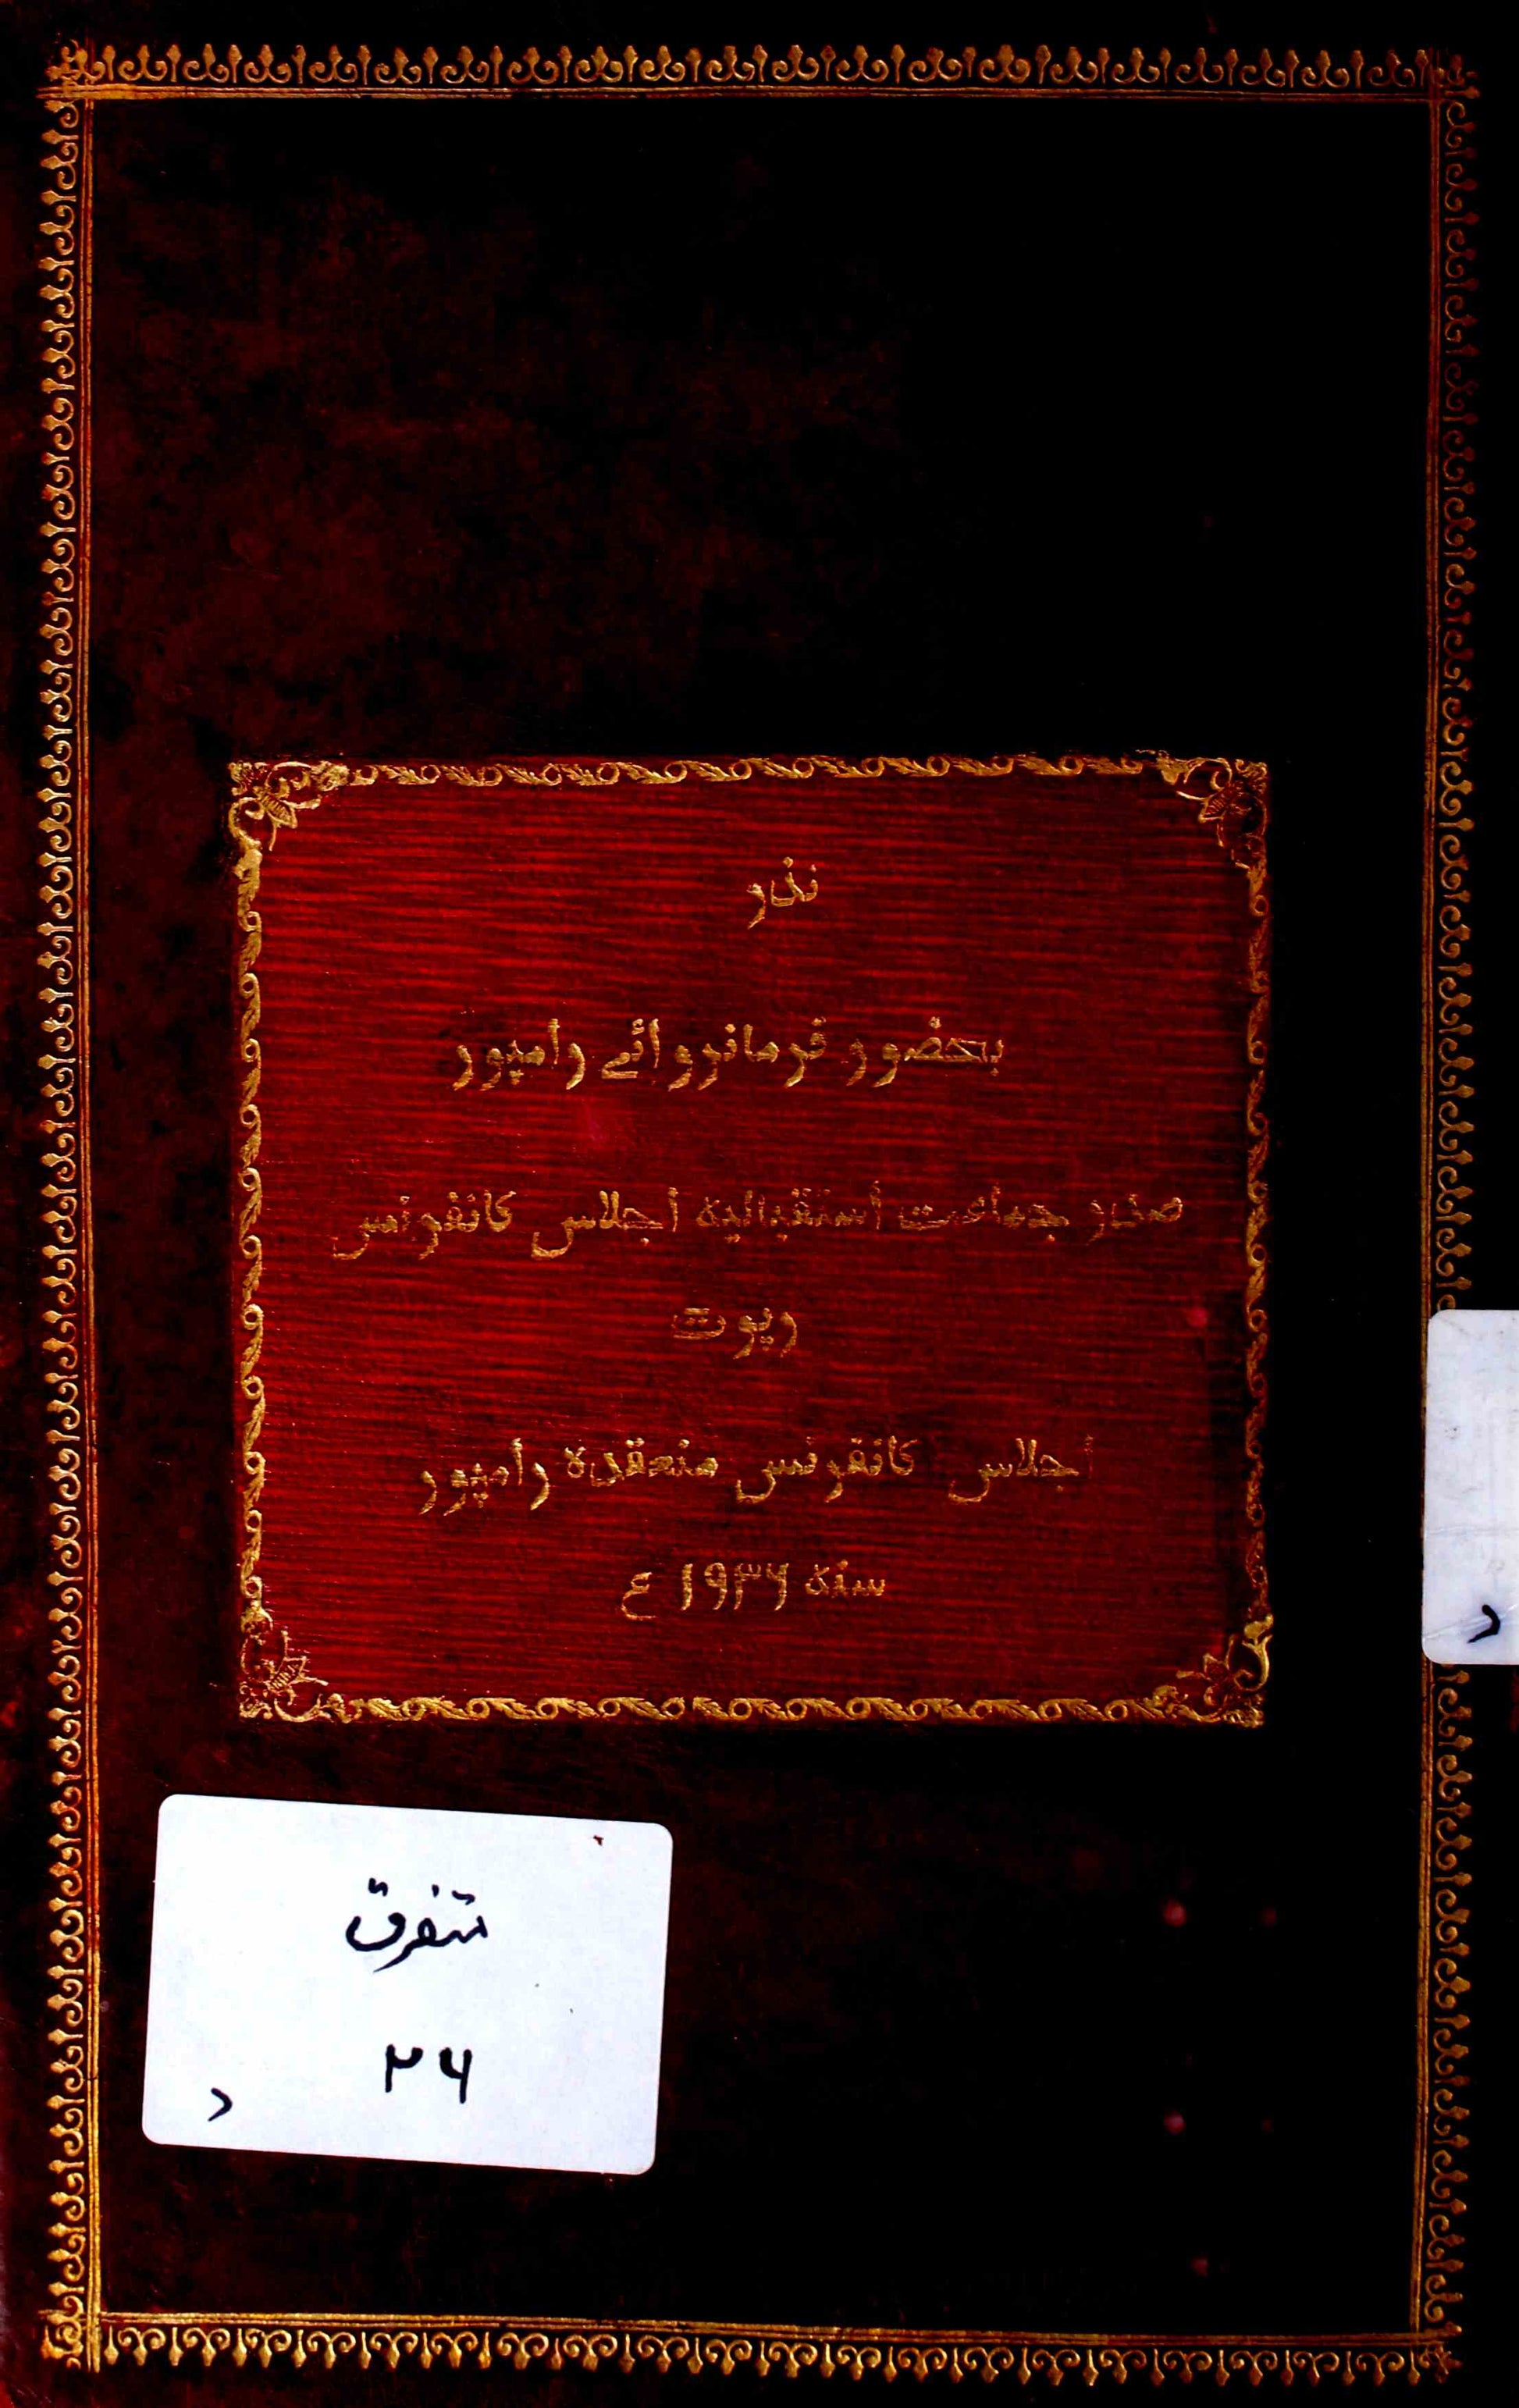 نذر
بحضور فرمانروائے رامپور
صدر جماعت استقبالیہ اجلاس کانفرنس
رپوٹ
اجلاس کانفرنس منعقدہ رامپور
سنہ ۱۹۳۶ ع
متفرق
۲۶
د
د